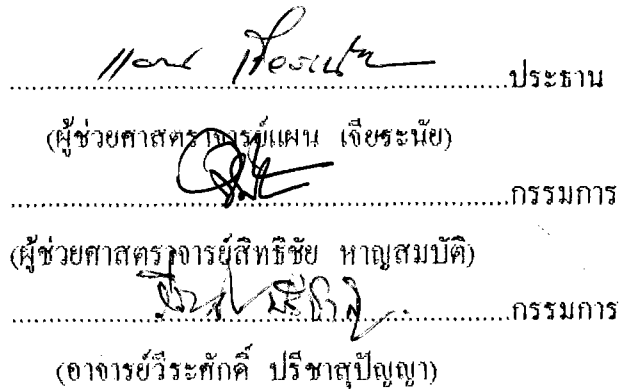 ........................................ประธาน
(ผู้ช่วยศาสตราจารย์แผน เจียระนัย)
........................................กรรมการ
(ผู้ช่วยศาสตราจารย์สิทธิชัย หาญสมบัติ)
........................................กรรมการ
(อาจารย์วีระศักดิ์ ปรีชาสุปัญญา)